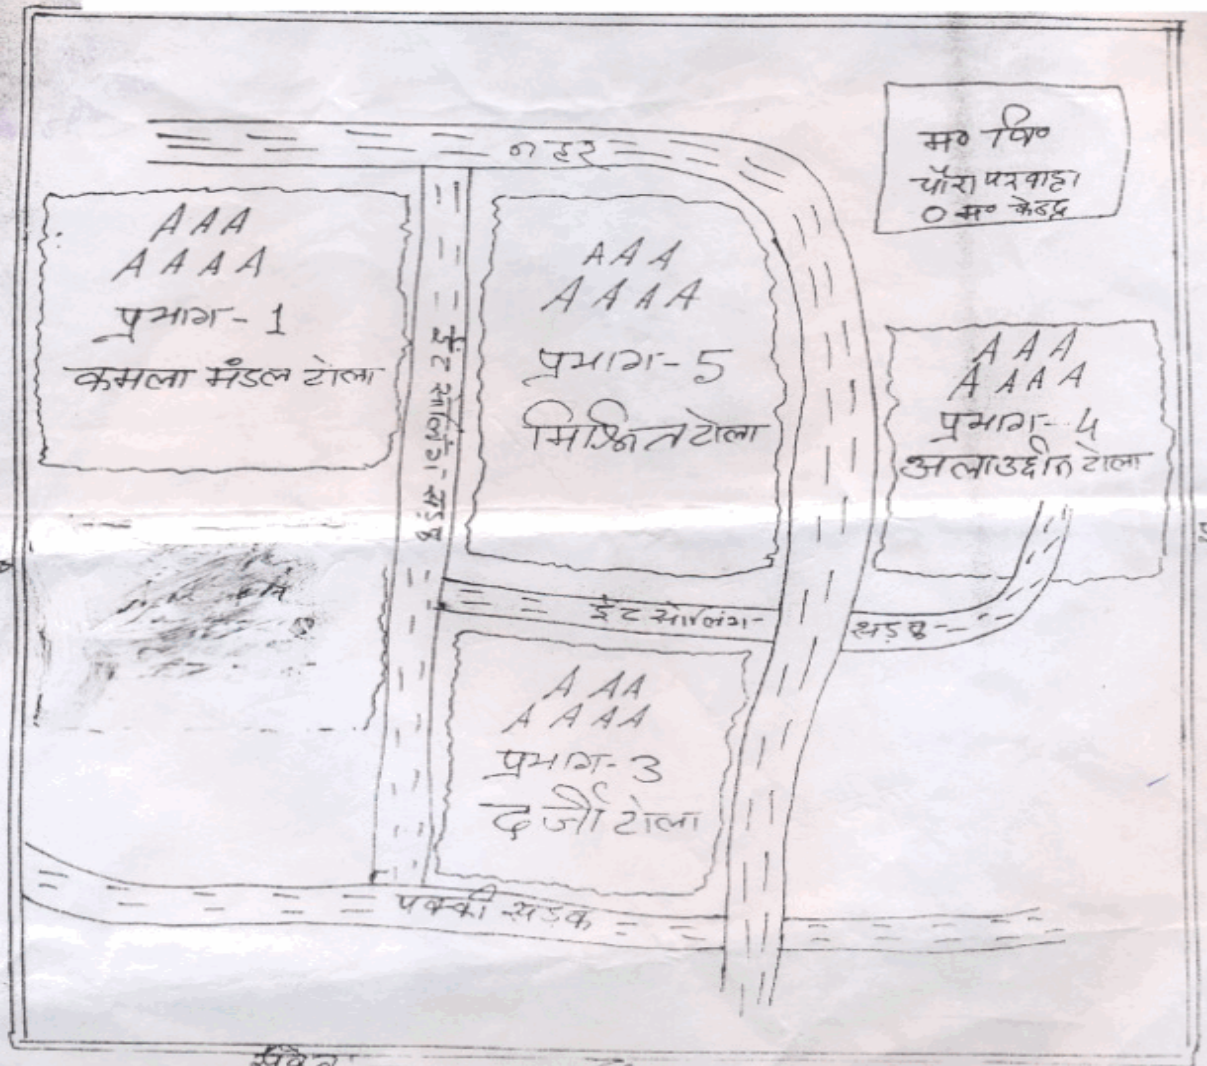 नहर
म० वि०
चौरा परवाहा
० म० केन्द्र
A A A
A A A A
प्रभाग - 1
कमला मंडल टोला
ईंट सोलिंग सड़क
A A A
A A A A
प्रभाग - 5
मिश्रित टोला
A A A
A A A A
प्रभाग - 4
अलाउद्दीन टोला
ईंट सोलिंग - सड़क
A A A
A A A A
प्रभाग - 3
दर्जी टोला
पक्की सड़क